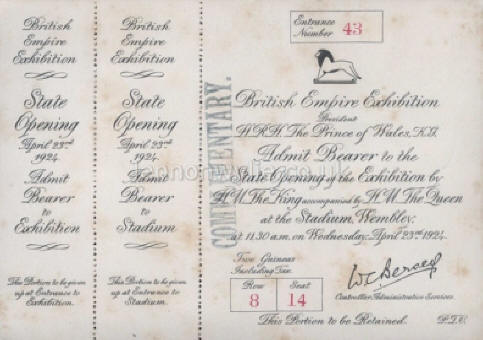 British
Empire
Exhibition
State
Opening
April 23rd
1924
Admit
Bearer
to
Exhibition
This Portion to be given
up at Entrance to
Exhibition.
British
Empire
Exhibition
State
Opening
April 23rd
1924
Admit
Bearer
to
Stadium
This Portion to be given
up at Entrance to
Stadium.
COMPLIMENTARY.
Entrance
Number 43
British Empire Exhibition
President
H.R.H. The Prince of Wales, K.G.
Admit Bearer to the
State Opening of the Exhibition by
H.M. The King accompanied by H.M. The Queen
at the Stadium, Wembley,
at 11.30 a.m. on Wednesday, April 23rd 1924.
Two Guineas
Including Tax
Row
8
Seat
14
Controller, Administrative Services.
This Portion to be Retained. P.T.O.